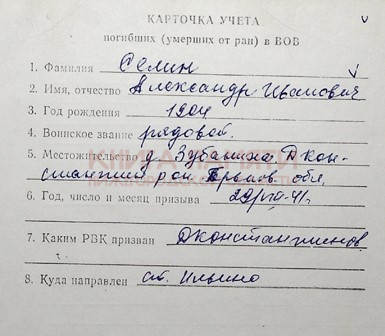 КАРТОЧКА УЧЕТА
погибших (умерших от ран) в ВОВ
1. Фамилия Селин
2. Имя, отчество Александр Иванович
3. Год рождения 1904
4. Воинское звание рядовой.
5. Местожительство д. Зубанха Дкон-
стантин рон Горьков. обл.
6. Год, число и месяц призыва 41г.
7. Каким РВК призван Дконстантинов
8. Куда направлен ст. Ильино
КНИГА ПАМЯТИ